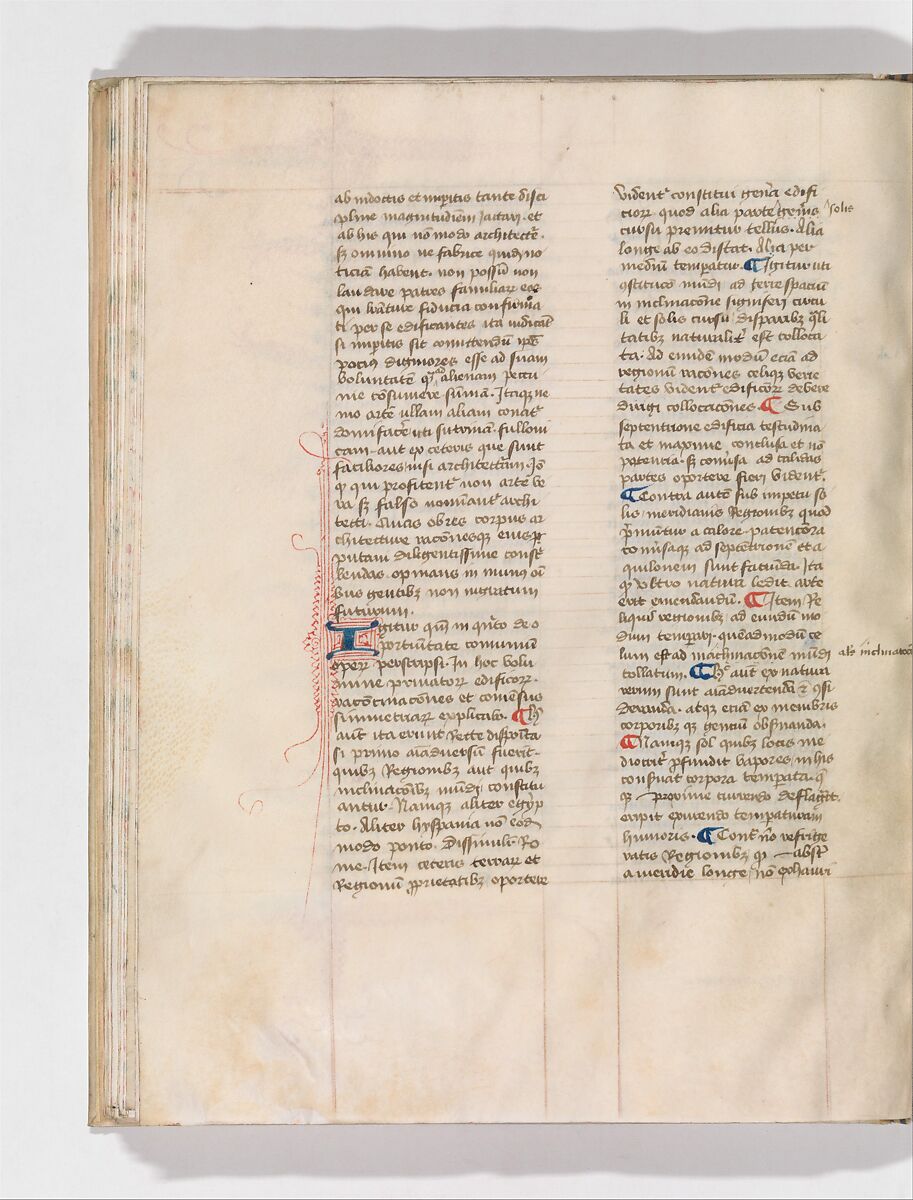 ab indoctis et imperitis tante disci
pline magnitudinem iactari et
ab his qui nō modo architectē.
sȝ omnino ne fabrice quidē no
ticiā habent. non possū non
laudare patres familiarꝝ eos
qui lrāture fiducia confirma
ti per se edificantes ita iudicāt
si imperitis sit comittendū ipōs
pocius digniores esse ad suam
voluntatē qͣꝫ ad alienam pecu
nie cōsumere sūmā. Itaqꝫ ne
mo artē ullam aliam conatʳ
domi facē uti sutrinā. fulloni
cam. aut ex ceteris que sunt
faciliores nisi architecturam. Jō
qꝫ qui profitentʳ non arte ve
ra sȝ falso nominantʳ archi
tecti. Quas obres corpus ar
chitecture racōnesqꝫ eius ꝑ
putaui diligentissime conscͥ
bendas. opinans in munus oī
bus gentibꝫ non ingratum
futurum.
Igitur qm̄ in qͥnto de o
portunitate comunium
operꝝ perscripsi. In hoc volu
mine priuatorꝝ edificiorꝝ.
racōcinacōnes et comensus
simmetriarꝝ explicabo. ¶ Hͨ
aut̄ ita erunt recte disposita
si primo aīaduersū fuerit.
quibꝫ Regionibꝫ aut quibꝫ
inclinacōibꝫ mundi constitu
antur. Namqꝫ aliter egyp
to. Aliter hyspania nō eodē
modo ponto. Dissimilit̄ Ro
me. Item ceteris terrarꝝ et
Regionū ꝓprietatibꝫ oportere
videntʳ constitui gen̄a edifi
ciorꝝ quod alia parte gen̄ius solis
cursu premitur tellus. Alia
longe ab eo distat. Alia per
mediū temperatʳ. ¶ Igitur uti
ↄstitucō mūdi ad terre spaciū
in inclinacōne signiferi circu
li et solis cursu disparibꝫ q̄li
tatibꝫ naturalit̄ est colloca
ta. Ad eundē modū eciā ad
regionū racōnes celiqꝫ varie
tates videntʳ edificiorꝝ debere
dirigi collocacōnes. ¶ Sub
septentrione edificia testudina
ta et maxime conclusa et nō
patencia. sȝ conūsa ad calidas
partes oportere fieri videntʳ.
¶ Contra autē sub impetu so
lis meridianis Regionibꝫ quod
p̄muntur a calore. patenciora
conūsaqꝫ ad septētrionē et a
quilonem sunt faciūda. Ita
qꝫ ultro natura ledit arte
erit emendandū. ¶ Item Re
liquis regionibꝫ ad eundū mo
dum temperari. queadmodū ce
lum est ad inclinacōnē mūdi als̄ inclinatōe
collatum. ¶ Hͨ aut̄ ex natura
rerum sunt aīaduertenda ⁊ ↄsi
deranda. atqꝫ eciam ex membris
corporibꝫ qꝫ gencium obs̄uanda.
¶ Namqꝫ sol quibꝫ locis me
diocrit̄ ꝓfundit vapores in his
consͣuat corpora temperata. q̄
qꝫ proxime currendo deflagrāt.
eripit exurendo temperaturam
humoris. ¶ Contͣ v̄o refrige
ratis Regionibꝫ qꝫ absūt
a meridie longe nō exhauri